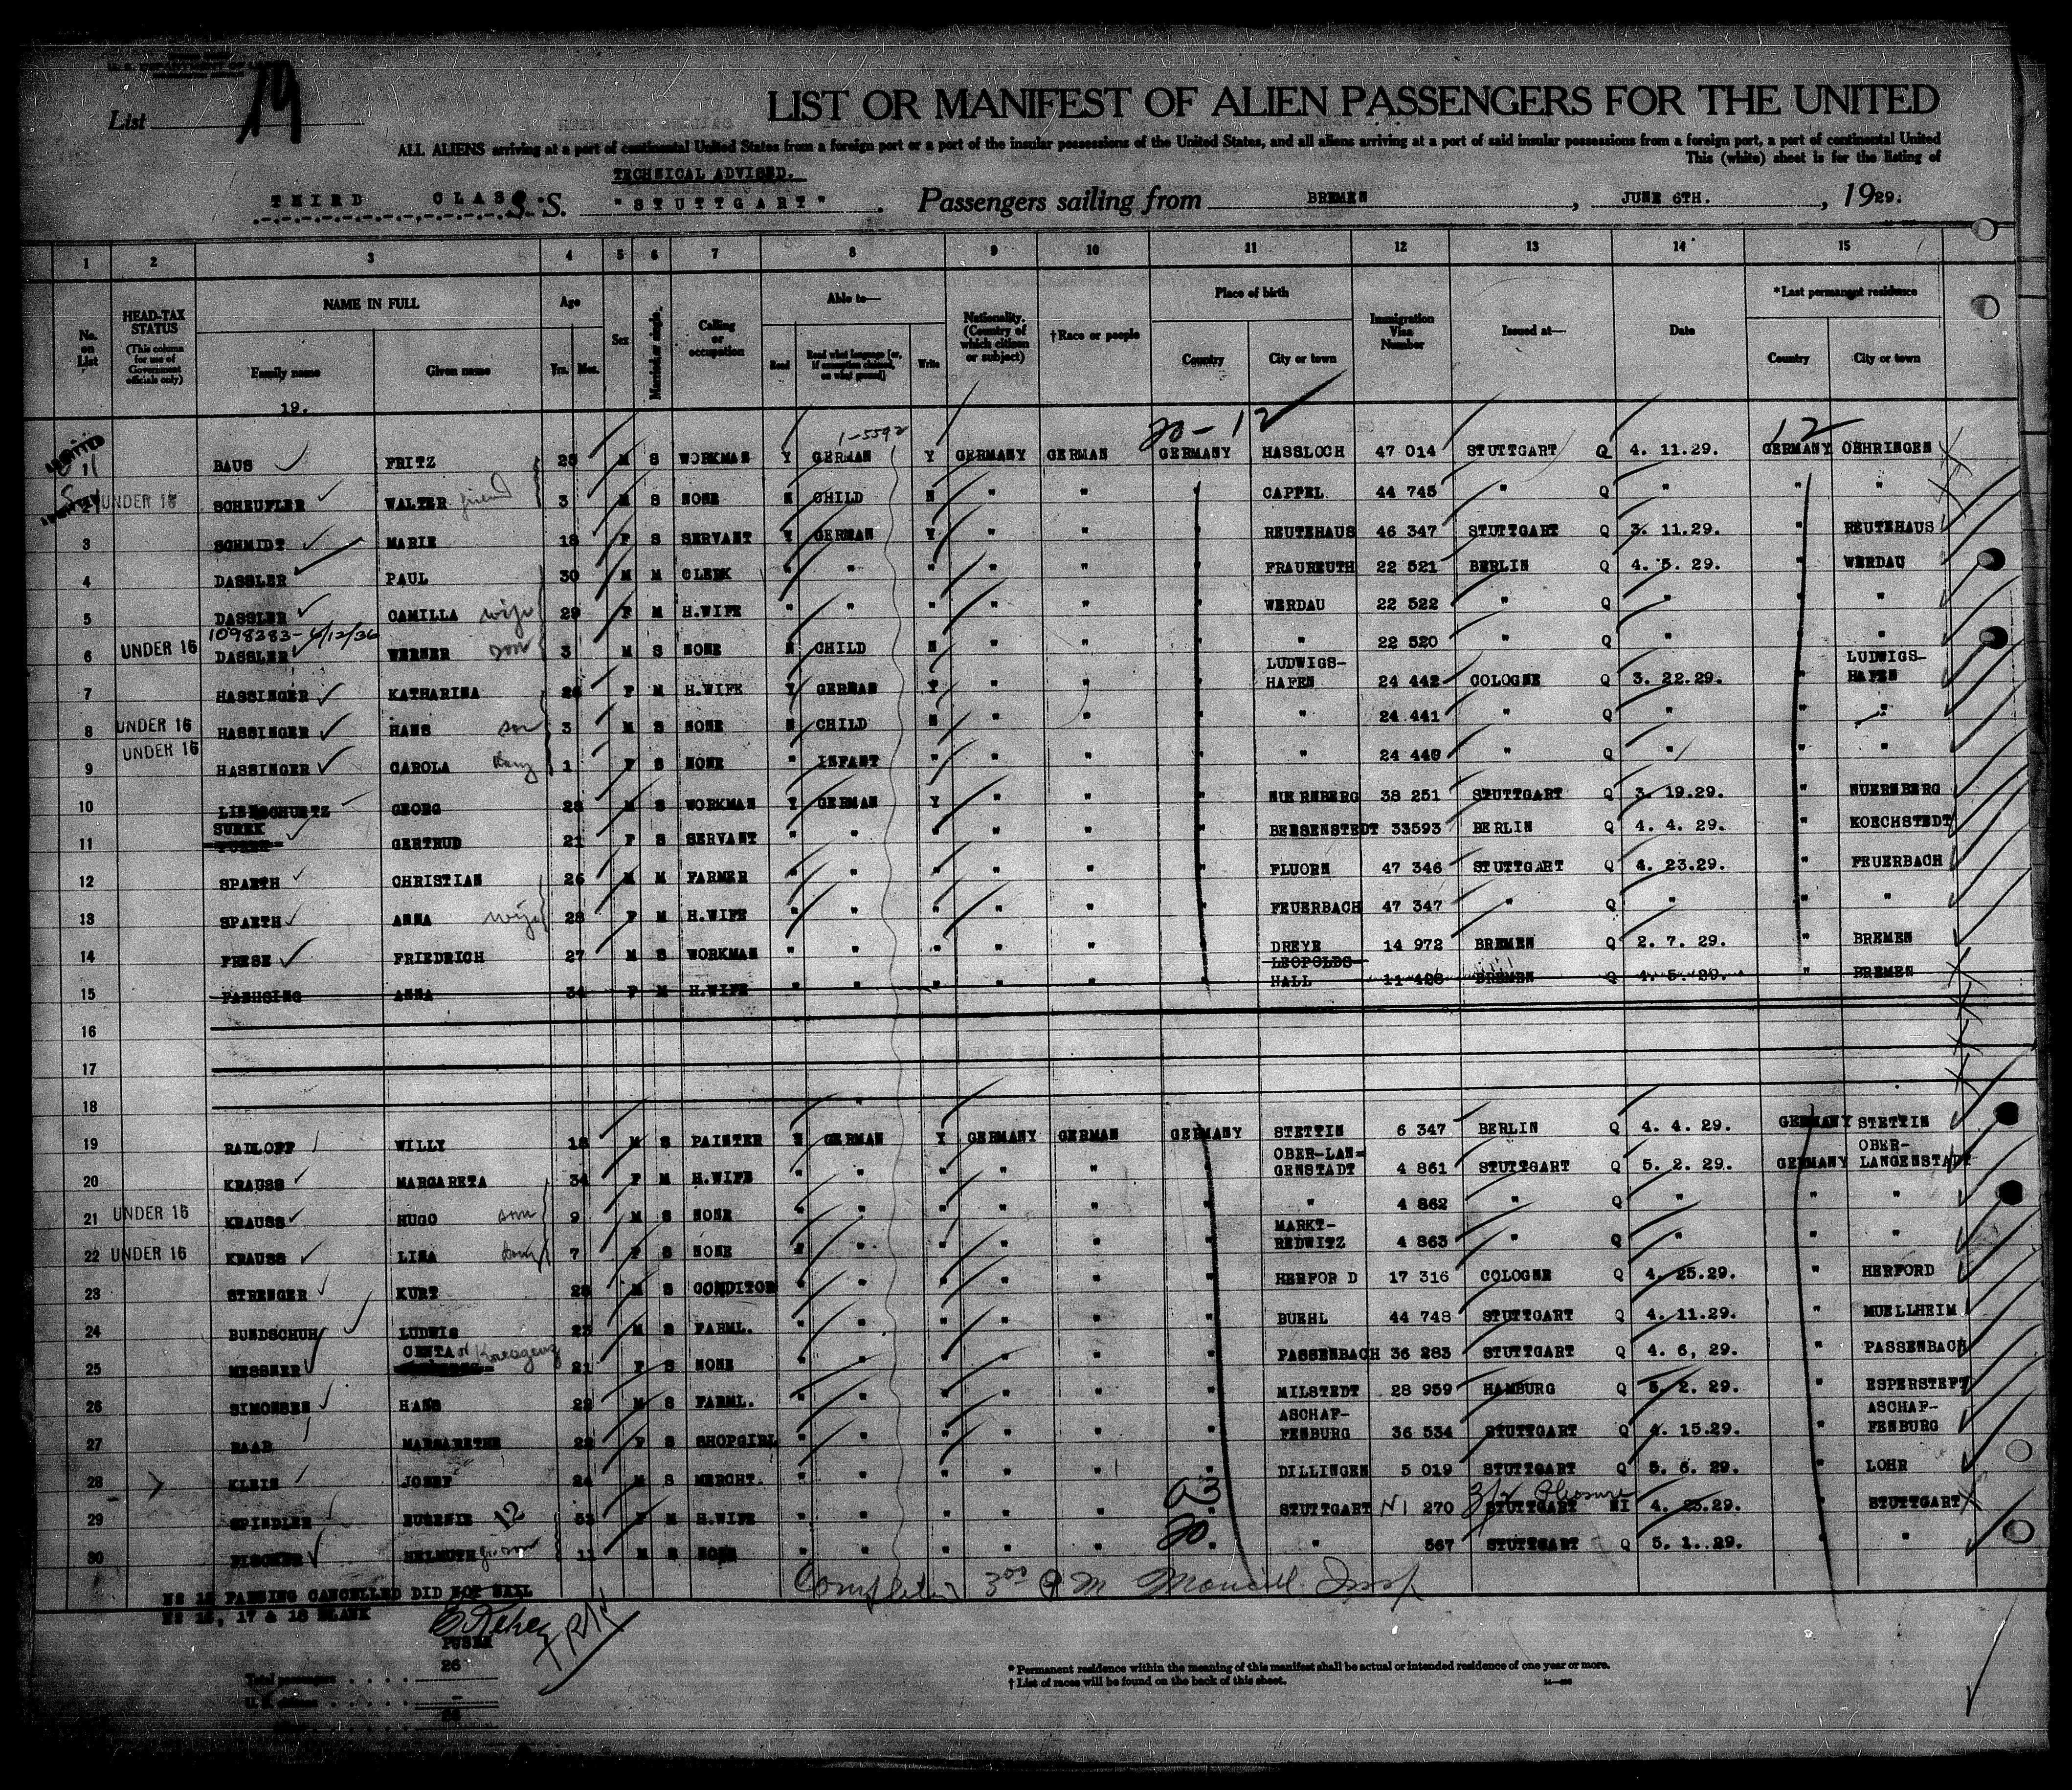 List 19
LIST OR MANIFEST OF ALIEN PASSENGERS FOR THE UNITED
ALL ALIENS arriving at a port of continental United States from a foreign port or a port of the insular possessions of the United States, and all aliens arriving at a port of said insular possessions from a foreign port, a port of continental United
This (white) sheet is for the listing of
TECHNICAL ADVISED.
THIRD CLASS S.S. "STUTTGART". Passengers sailing from BREMEN, JUNE 6TH., 1929.
1 2 3 4 5 6 7 8 9 10 11 12 13 14 15
No. on List
HEAD-TAX STATUS (This column for use of Government officials only)
NAME IN FULL Family name Given name
Age Yrs. Mos.
Sex
Married or single
Calling or occupation
Able to— Read Read what language [or, if exemption claimed, on what ground] Write
Nationality. (Country of which citizen or subject)
†Race or people
Place of birth Country City or town
Immigration Visa Number
Issued at—
Date
*Last permanent residence Country City or town
19.
1-5592 20-12 12
BAUS FRITZ 25 M S WORKMAN Y GERMAN Y GERMANY GERMAN GERMANY HASSLOCH 47 014 STUTTGART Q 4. 11.29. GERMANY OEHRINGEN
UNDER 16 SCHEUFLER WALTER friend 3 M S NONE N CHILD N " " " CAPPEL 44 745 " Q " " "
3 SCHMIDT MARIE 18 F S SERVANT Y GERMAN Y " " " REUTEHAUS 46 347 STUTTGART Q 3. 11.29. " REUTEHAUS
4 DASSLER PAUL 30 M M CLERK " " " " " " FRAUREUTH 22 521 BERLIN Q 4. 5. 29. " WERDAU
5 DASSLER CAMILLA wife 29 F M H.WIFE " " " " " " WERDAU 22 522 " Q " " "
1098283-6/12/36
6 UNDER 16 DASSLER WERNER son 3 M S NONE N CHILD N " " " " 22 520 " Q " " "
7 HASSINGER KATHARINA 26 F M H.WIFE Y GERMAN Y " " " LUDWIGS-HAFEN 24 442 COLOGNE Q 3. 22.29. " LUDWIGS-HAFEN
8 UNDER 16 HASSINGER HANS son 3 M S NONE N CHILD N " " " " 24 441 " Q " " "
9 UNDER 16 HASSINGER CAROLA 1 F S NONE " INFANT " " " " " 24 440 " Q " " "
10 GEORG 28 M S WORKMAN Y GERMAN Y " " " NUERNBERG 38 251 STUTTGART Q 3. 19.29. " NUERNBERG
11 SUREK GERTRUD 21 F S SERVANT " " " " " " BEESENSTEDT 33593 BERLIN Q 4. 4. 29. " KOECHSTEDT
12 SPAETH CHRISTIAN 26 M M FARMER " " " " " " FLUORN 47 346 STUTTGART Q 4. 23.29. " FEUERBACH
13 SPAETH ANNA wife 28 F M H.WIFE " " " " " " FEUERBACH 47 347 " Q " " "
14 FRESE FRIEDRICH 27 M S WORKMAN " " " " " " DREYE 14 972 BREMEN Q 2. 7. 29. " BREMEN
15 FAEHSING ANNA 34 F M H.WIFE " " " " " " LEOPOLDS-HALL 11 426 BREMEN Q 4. 5. 29. " BREMEN
16
17
18
19 RADLOFF WILLY 18 M S PAINTER Y GERMAN Y GERMANY GERMAN GERMANY STETTIN 6 347 BERLIN Q 4. 4. 29. GERMANY STETTIN
20 KRAUSS MARGARETA 34 F M H.WIFE " " " " " " OBER-LANGENSTADT 4 861 STUTTGART Q 5. 2. 29. GERMANY OBER-LANGENSTADT
21 UNDER 16 KRAUSS HUGO son 9 M S NONE " " " " " " " 4 862 " Q " " "
22 UNDER 16 KRAUSS LINA 7 F S NONE " " " " " " MARKT-REDWITZ 4 863 " Q " " "
23 STRENGER KURT 28 M S CONDITOR " " " " " " HERFORD 17 316 COLOGNE Q 4. 25.29. " HERFORD
24 BUNDSCHUH LUDWIG 23 M S FARML. " " " " " " BUEHL 44 748 STUTTGART Q 4. 11.29. " MUELLHEIM
25 MESSNER CENTA or Kreszenz 21 F S NONE " " " " " " PASSENBACH 36 283 STUTTGART Q 4. 6, 29. " PASSENBACH
26 SIMONSEN HANS 22 M S FARML. " " " " " " MILSTEDT 28 959 HAMBURG Q 5. 2. 29. " ESPERSTEFT
27 RAAB MARGARETHE 22 F S SHOPGIRL " " " " " " ASCHAF-FENBURG 36 534 STUTTGART Q 4. 15.29. " ASCHAF-FENBURG
28 KLEIN JOSEF 24 M S MERCHT. " " " " " " DILLINGEN 5 019 STUTTGART Q 5. 6. 29. " LOHR
29 SPINDLER EUGENIE 12 53 F M H.WIFE " " " " " 03 " STUTTGART NI 270 Pleasure STUTTGART NI 4. 25.29. " STUTTGART
30 FISCHER HELMUTH 11 M S NONE " " " " " 20 " " 567 STUTTGART Q 5. 1. 29. " "
Completed 3 00 PM Insp
NO 15 FAHSING CANCELLED DID NOT SAIL
NO 16, 17 & 18 BLANK
PUSER
Total passengers 26
* Permanent residence within the meaning of this manifest shall be actual or intended residence of one year or more.
† List of races will be found on the back of this sheet.